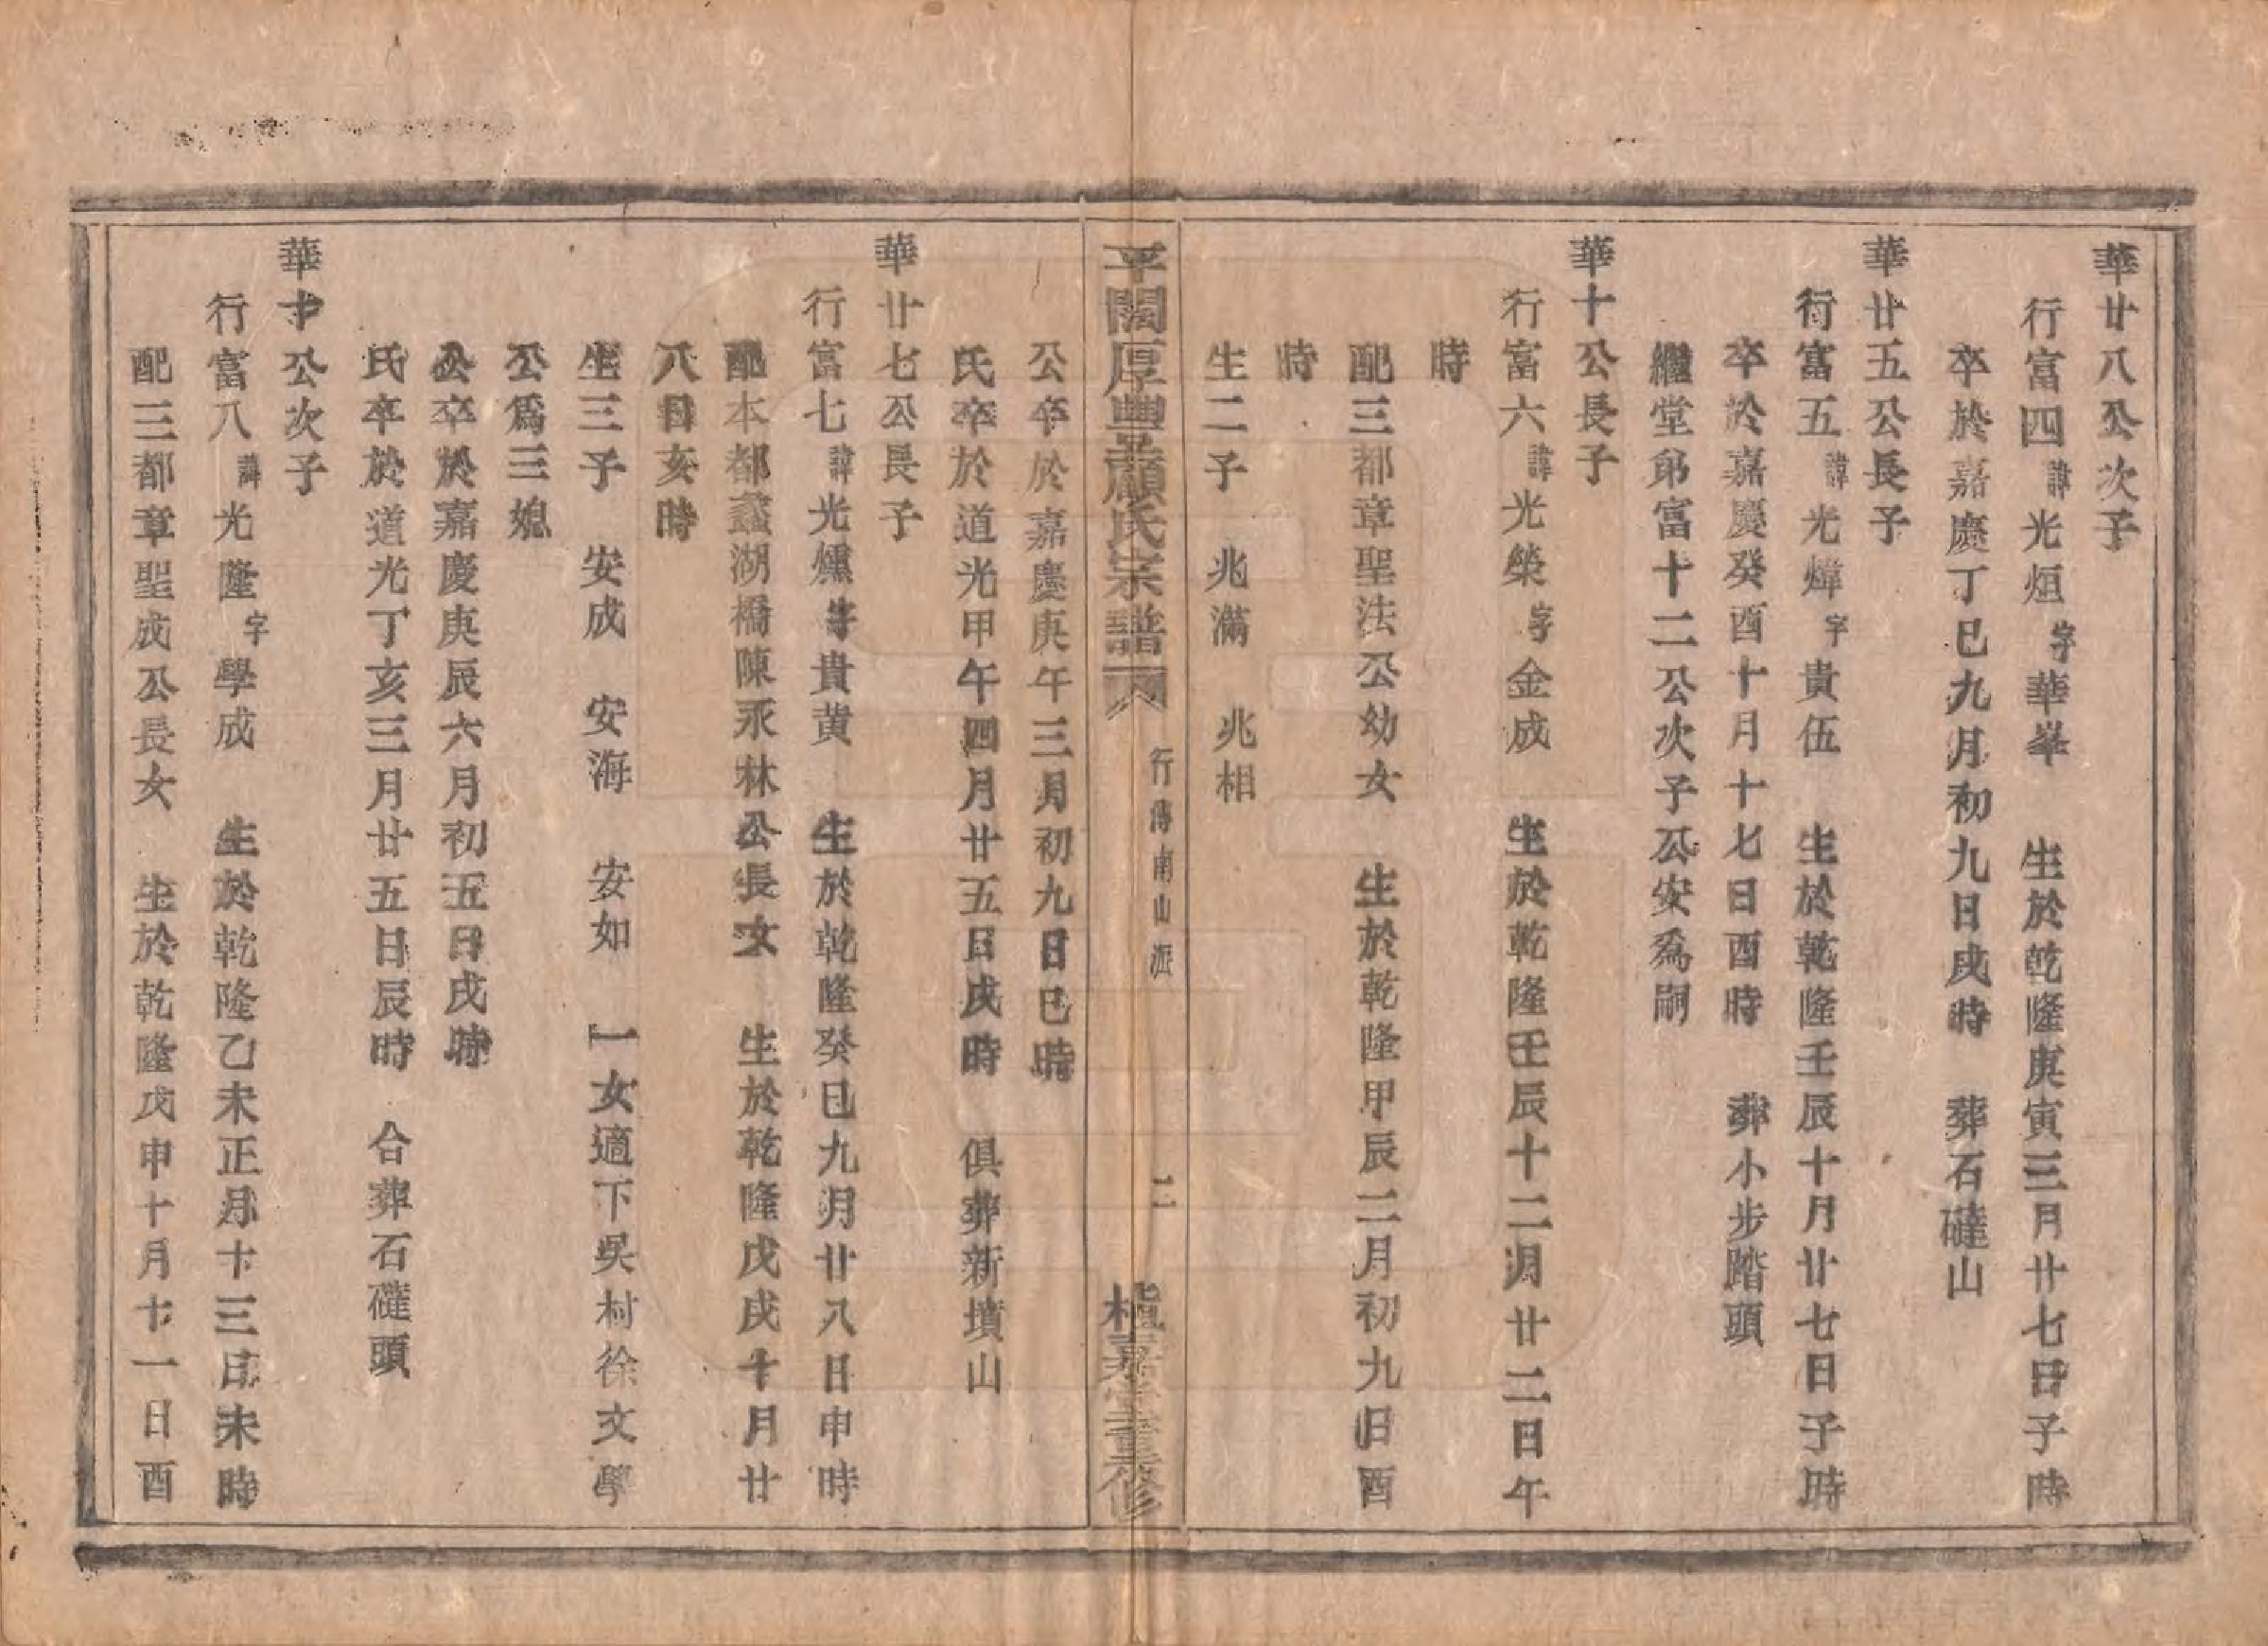 華廿八公次子
行富四諱光烜字華峯　生於乾隆庚寅三月廿七日子時
卒於嘉慶丁巳九月初九日戌時　葬石磋山
華廿五公長子
行富五諱光煒字貴伍　生於乾隆壬辰十月廿七日子時
卒於嘉慶癸酉十月十七日酉時　葬小步踏頭
繼堂弟富十二公次子公安爲嗣
華十公長子
行富六諱光榮字金成　生於乾隆壬辰十二月廿二日午
時
配三都章聖法公幼女　生於乾隆甲辰二月初九日酉
時
生二子　兆滿　兆相
平闊厚豐顧氏宗譜
行傳南山派
二
植嘉堂重修
公卒於嘉慶庚午三月初九日巳時
氏卒於道光甲午四月廿五日戌時　俱葬新墳山
華廿七公長子
行富七諱光燻字貴黄　生於乾隆癸巳九月廿八日申時
配本都蠡湖橋陳永林公長女　生於乾隆戊戌十月廿
八日亥時
生三子　安成　安海　安如　一女適下吳村徐文學
公爲三媳
公卒於嘉慶庚辰六月初五日戌時
氏卒於道光丁亥三月廿五日辰時　合葬石磋頭
華十公次子
行富八諱光隆字學成　生於乾隆乙未正月十三日未時
配三都章聖成公長女　生於乾隆戊申十月十一日酉